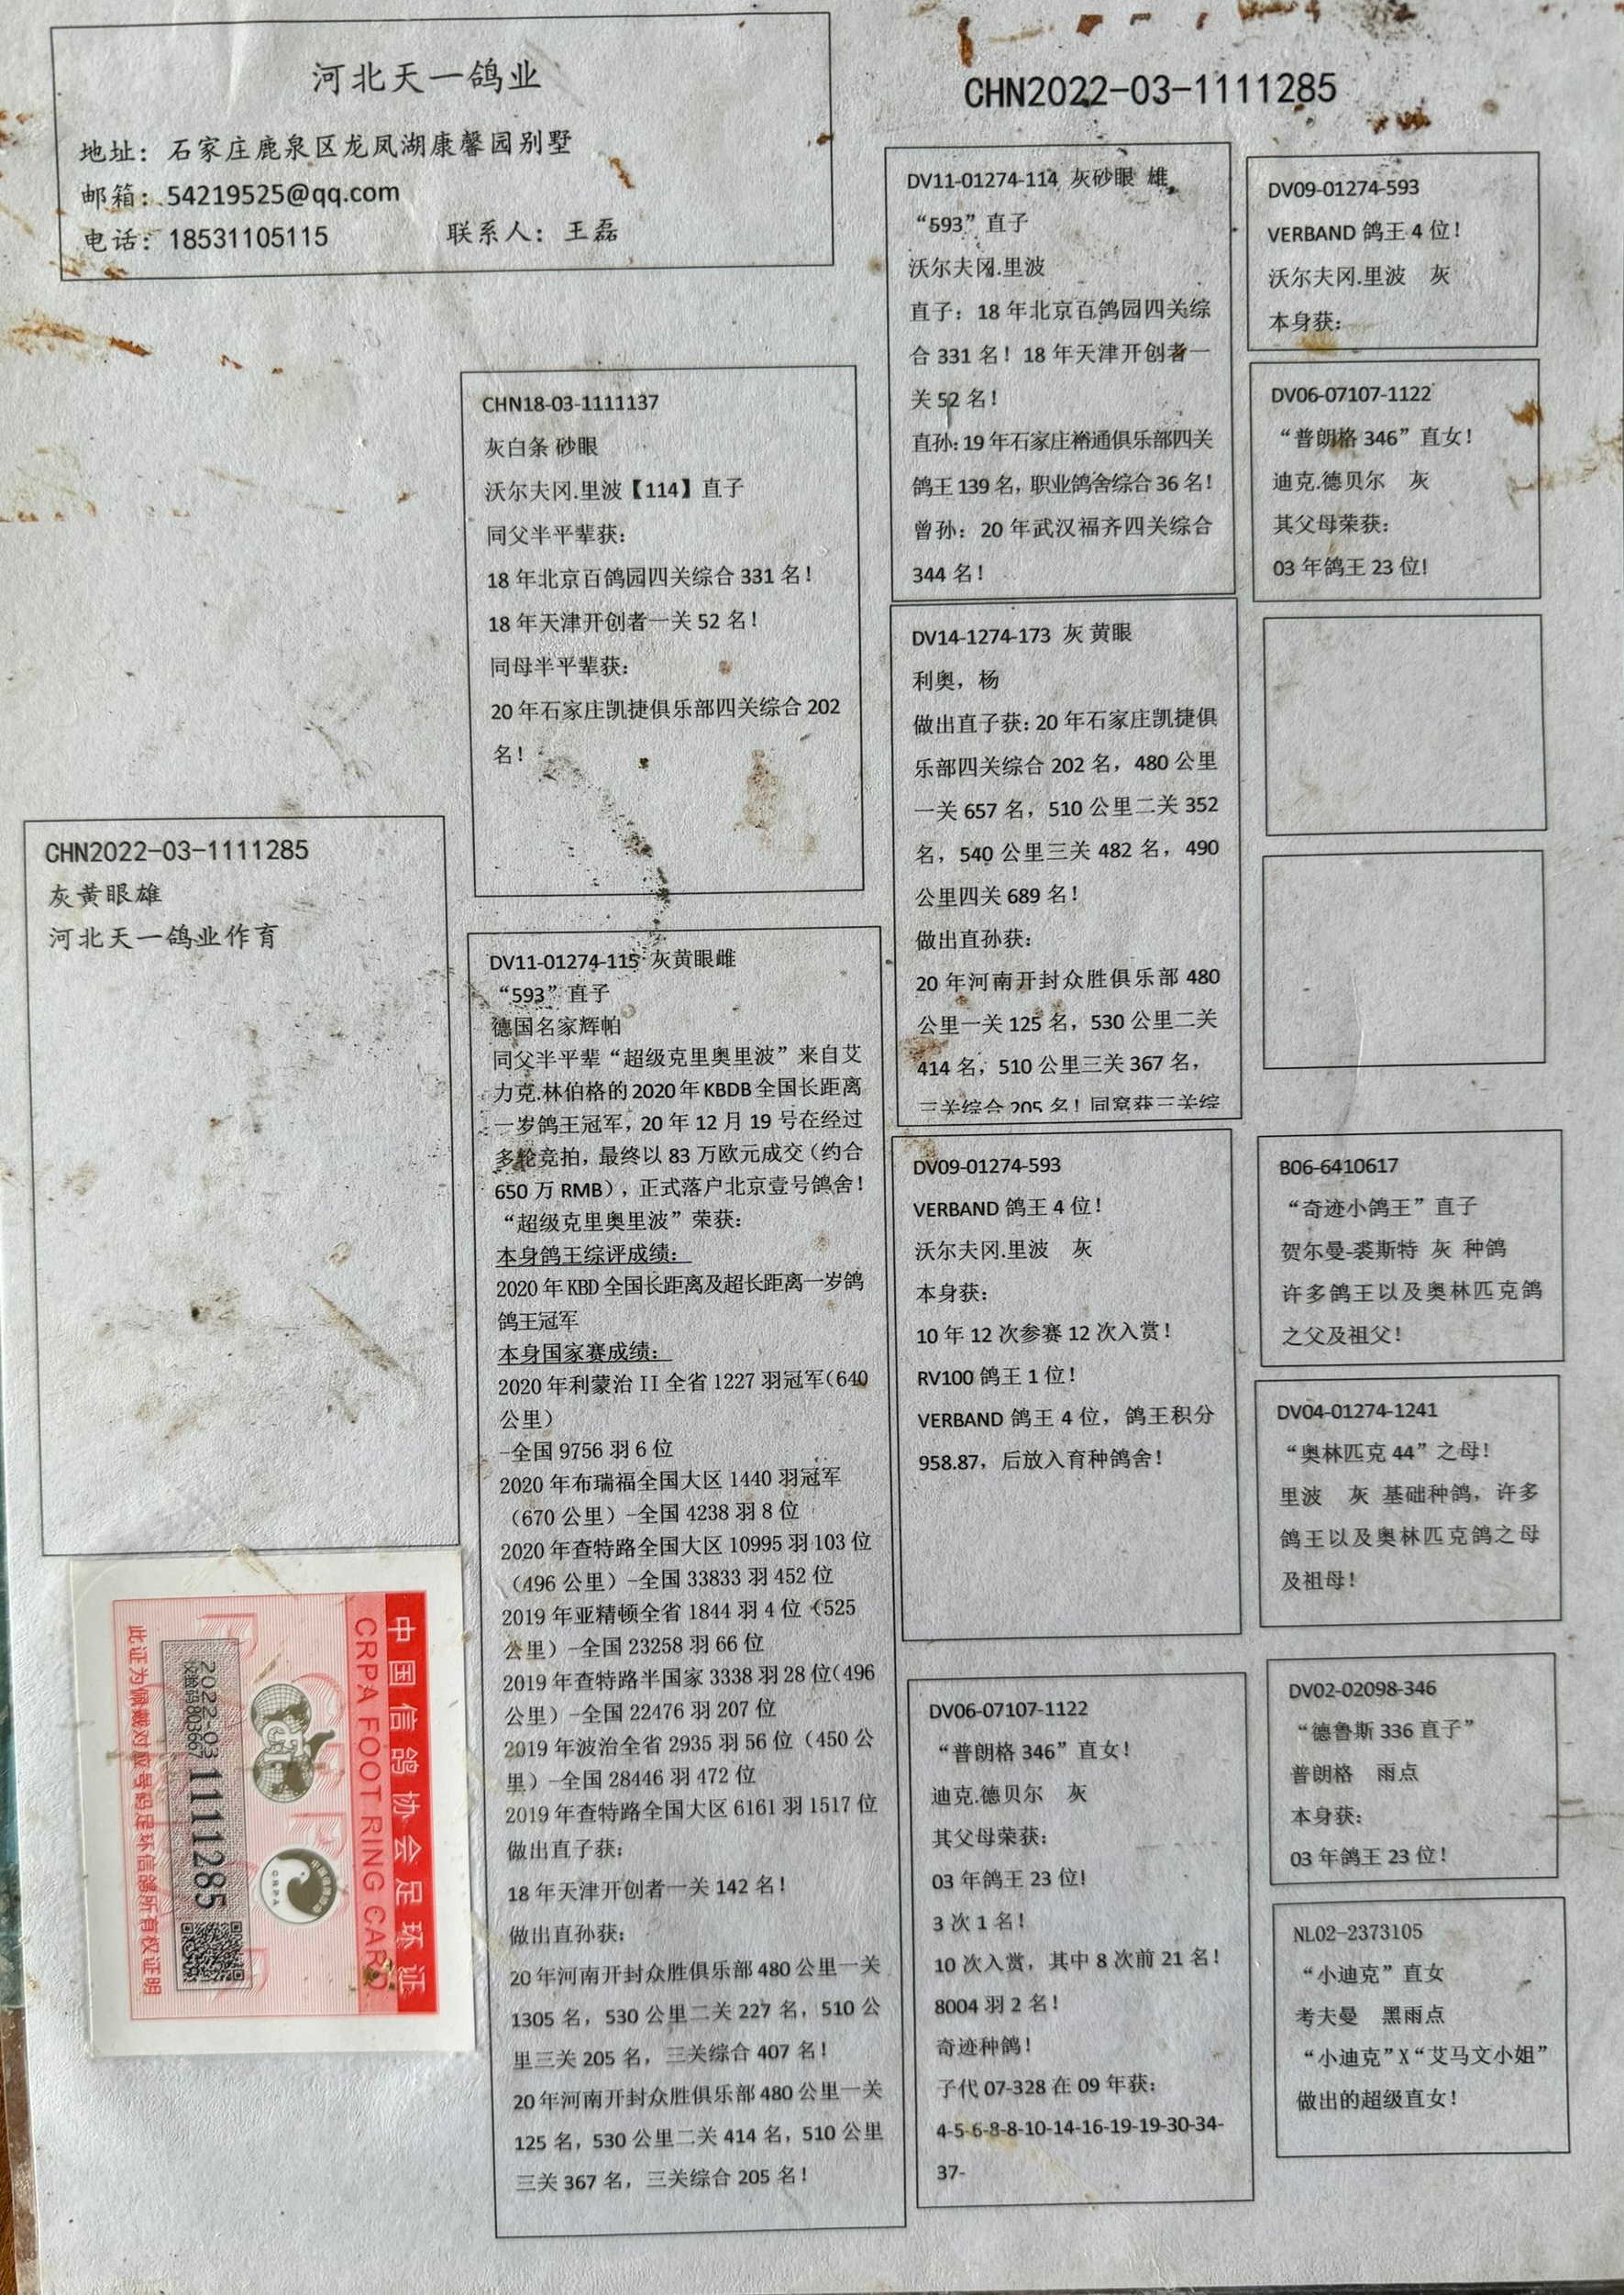 河北天一鸽业
地址：石家庄鹿泉区龙凤湖康馨园别墅
邮箱：54219525@qq.com
电话：18531105115 联系人：王磊
CHN2022-03-1111285
CHN2022-03-1111285
灰黄眼雄
河北天一鸽业作育
CHN18-03-1111137
灰白条 砂眼
沃尔夫冈.里波【114】直子
同父半平辈获：
18 年北京百鸽园四关综合 331 名！
18 年天津开创者一关 52 名！
同母半平辈获：
20 年石家庄凯捷俱乐部四关综合 202
名！
DV11-01274-115 灰黄眼雌
“593”直子
德国名家辉帕
同父半平辈“超级克里奥里波”来自艾
力克.林伯格的 2020 年 KBDB 全国长距离
一岁鸽王冠军，20 年 12 月 19 号在经过
多轮竞拍，最终以 83 万欧元成交（约合
650 万 RMB），正式落户北京壹号鸽舍！
“超级克里奥里波”荣获：
本身鸽王综评成绩：
2020 年 KBD 全国长距离及超长距离一岁鸽
鸽王冠军
本身国家赛成绩：
2020 年利蒙治 II 全省 1227 羽冠军（640
公里）
-全国 9756 羽 6 位
2020 年布瑞福全国大区 1440 羽冠军
（670 公里）-全国 4238 羽 8 位
2020 年查特路全国大区 10995 羽 103 位
（496 公里）-全国 33833 羽 452 位
2019 年亚精顿全省 1844 羽 4 位（525
公里）-全国 23258 羽 66 位
2019 年查特路半国家 3338 羽 28 位（496
公里）-全国 22476 羽 207 位
2019 年波治全省 2935 羽 56 位（450 公
里）-全国 28446 羽 472 位
2019 年查特路全国大区 6161 羽 1517 位
做出直子获：
18 年天津开创者一关 142 名！
做出直孙获：
20 年河南开封众胜俱乐部 480 公里一关
1305 名，530 公里二关 227 名，510 公
里三关 205 名，三关综合 407 名！
20 年河南开封众胜俱乐部 480 公里一关
125 名，530 公里二关 414 名，510 公里
三关 367 名，三关综合 205 名！
DV11-01274-114 灰砂眼 雄
“593”直子
沃尔夫冈.里波
直子：18 年北京百鸽园四关综
合 331 名！18 年天津开创者一
关 52 名！
直孙：19 年石家庄裕通俱乐部四关
鸽王 139 名，职业鸽舍综合 36 名！
曾孙：20 年武汉福齐四关综合
344 名！
DV14-1274-173 灰 黄眼
利奥，杨
做出直子获：20 年石家庄凯捷俱
乐部四关综合 202 名，480 公里
一关 657 名，510 公里二关 352
名，540 公里三关 482 名，490
公里四关 689 名！
做出直孙获：
20 年河南开封众胜俱乐部 480
公里一关 125 名，530 公里二关
414 名，510 公里三关 367 名，
三关综合 205 名！同窝获三关综
DV09-01274-593
VERBAND 鸽王 4 位！
沃尔夫冈.里波 灰
本身获：
10 年 12 次参赛 12 次入赏！
RV100 鸽王 1 位！
VERBAND 鸽王 4 位，鸽王积分
958.87，后放入育种鸽舍！
DV06-07107-1122
“普朗格 346”直女！
迪克.德贝尔 灰
其父母荣获：
03 年鸽王 23 位！
3 次 1 名！
10 次入赏，其中 8 次前 21 名！
8004 羽 2 名！
奇迹种鸽！
子代 07-328 在 09 年获：
4-5-6-8-8-10-14-16-19-19-30-34-
37-
DV09-01274-593
VERBAND 鸽王 4 位！
沃尔夫冈.里波 灰
本身获：
DV06-07107-1122
“普朗格 346”直女！
迪克.德贝尔 灰
其父母荣获：
03 年鸽王 23 位！
B06-6410617
“奇迹小鸽王”直子
贺尔曼-裘斯特 灰 种鸽
许多鸽王以及奥林匹克鸽
之父及祖父！
DV04-01274-1241
“奥林匹克 44”之母！
里波 灰 基础种鸽，许多
鸽王以及奥林匹克鸽之母
及祖母！
DV02-02098-346
“德鲁斯 336 直子”
普朗格 雨点
本身获：
03 年鸽王 23 位！
NL02-2373105
“小迪克”直女
考夫曼 黑雨点
“小迪克”X“艾马文小姐”
做出的超级直女！
中国信鸽协会足环证
CRPA FOOT RING CARD
2022-03 1111285
此证为佩戴对应号码足环信鸽所有权证明